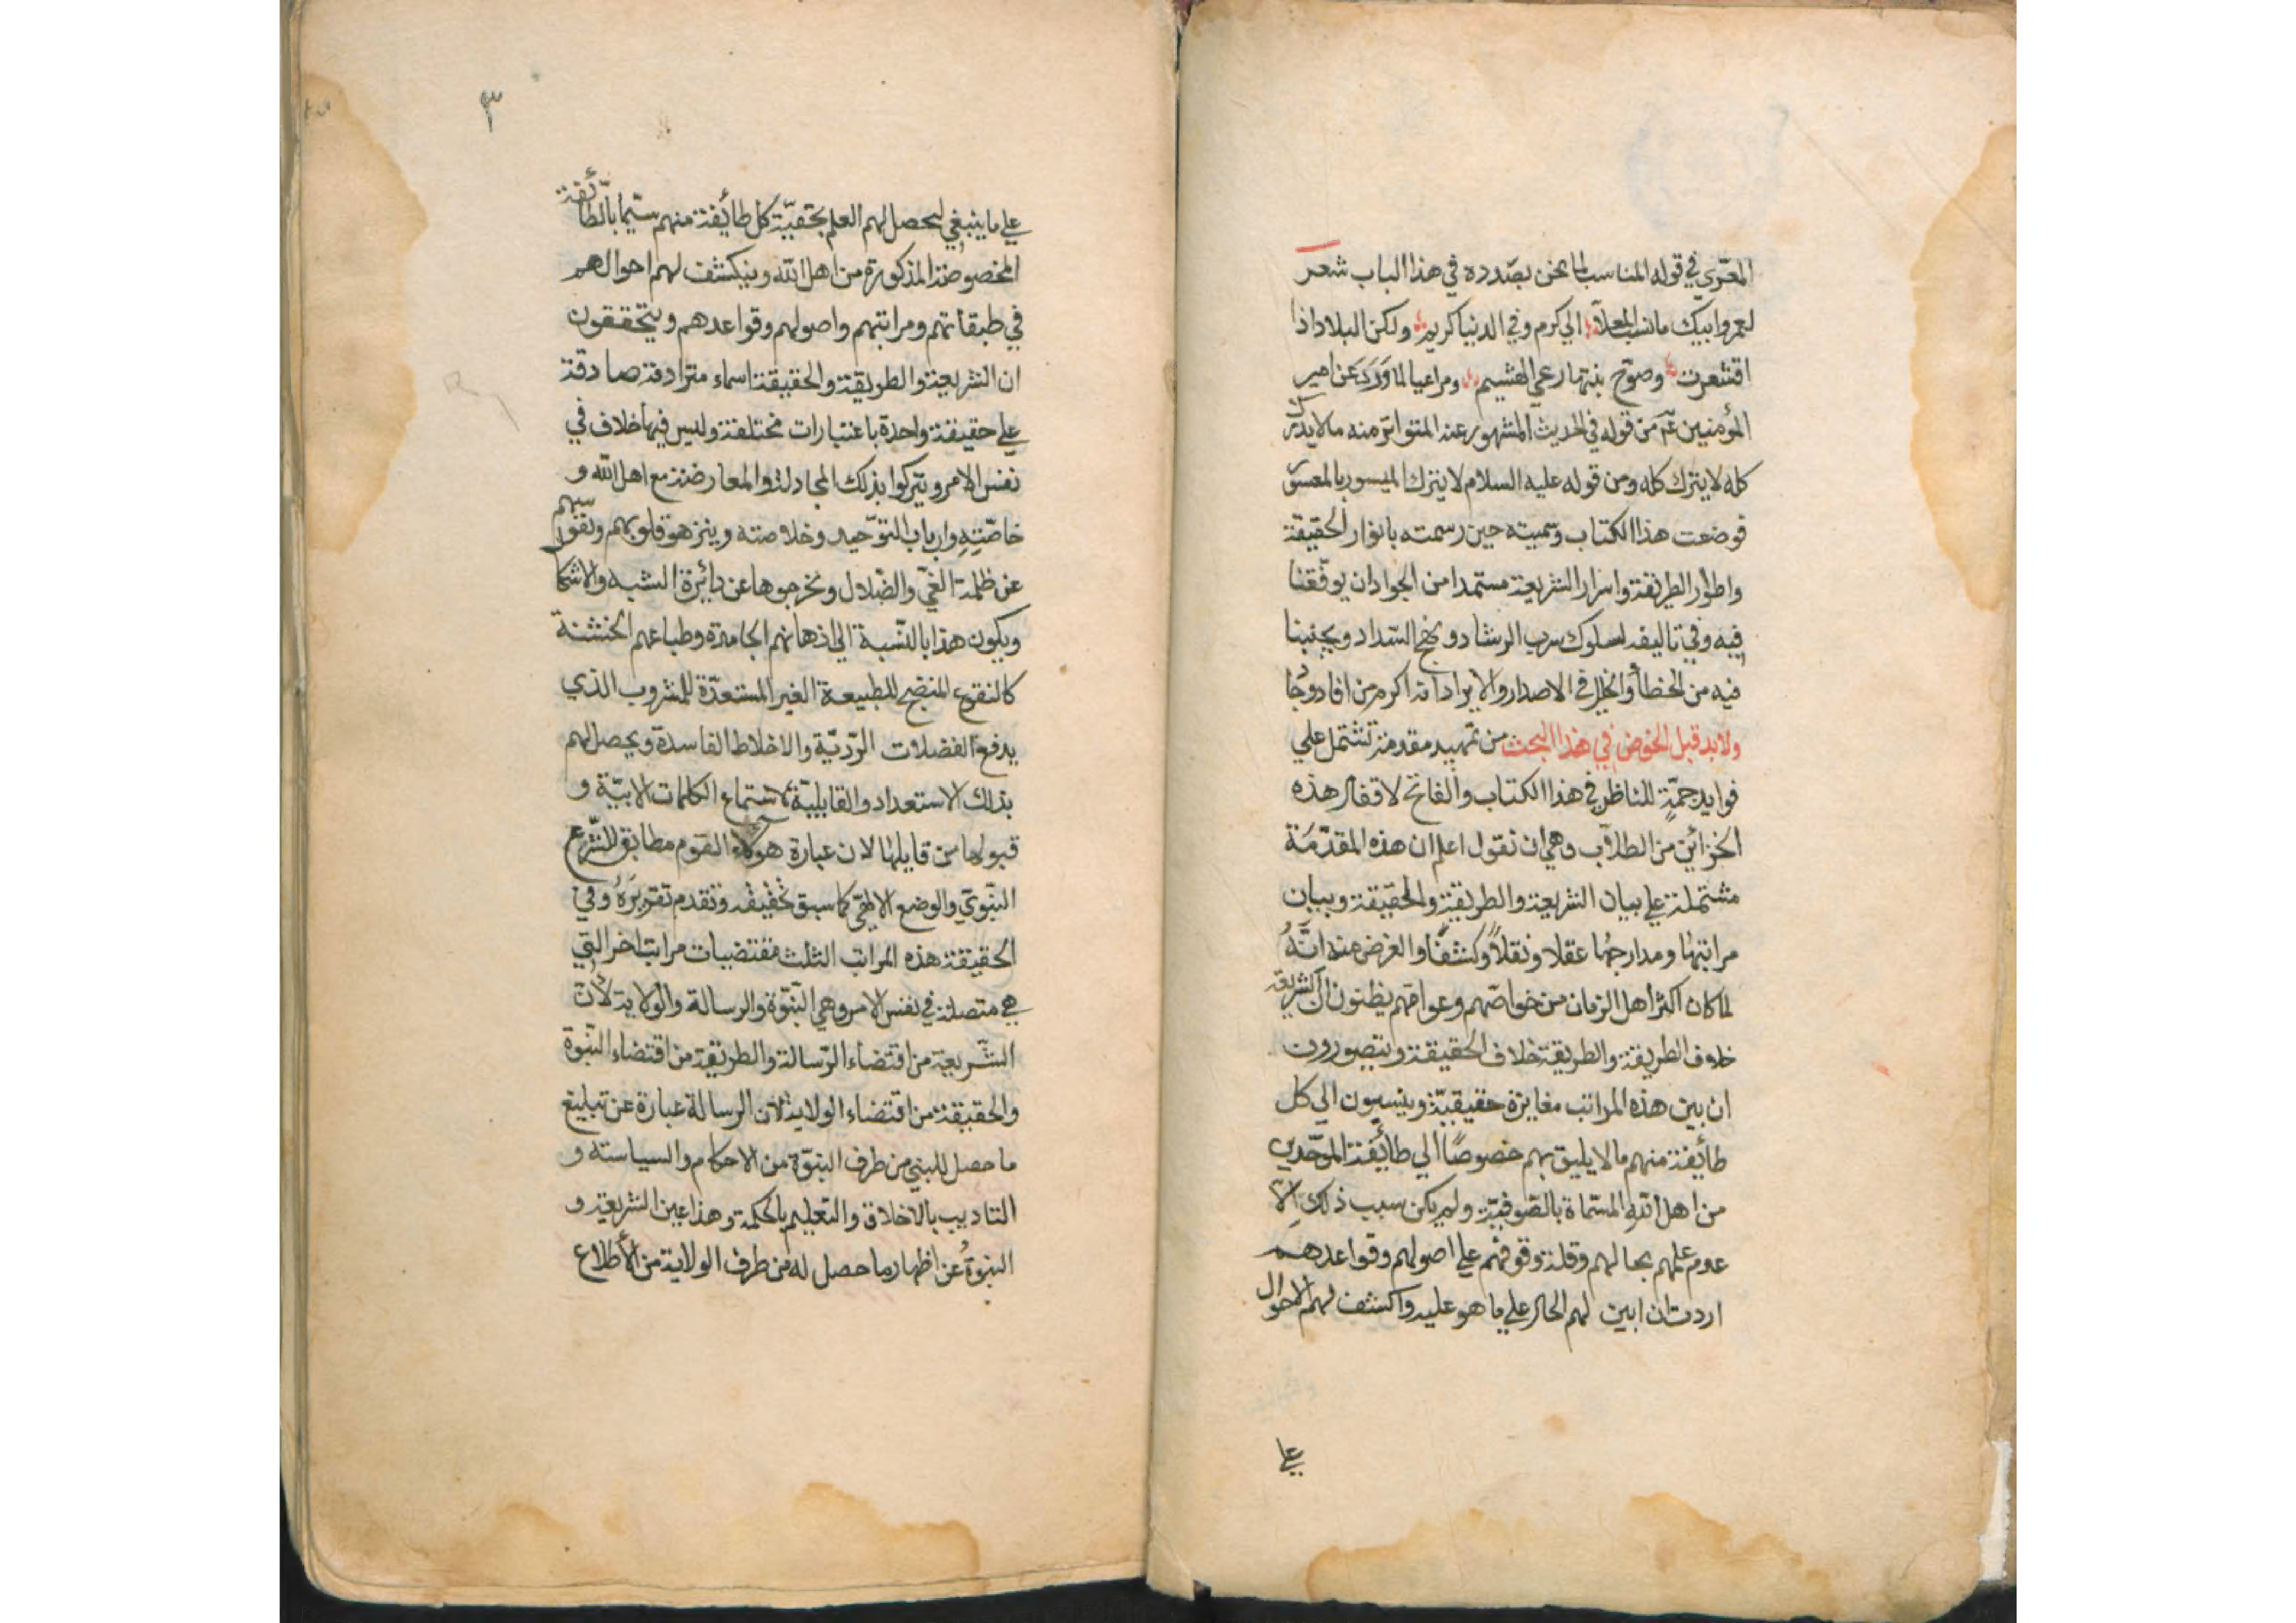 المعرّي في قوله المناسب لما نحن بصدده في هذا الباب شعر
لعمر وابيك ما نسب المعلّا الي كرم وفي الدنيا كريم ولكن البلاد اذا
اقشعرت وصوّح نبتها رعي الهشيم ومراعيا لما وَرَدَ عن امير
المؤمنين عم من قوله في الحديث المشهور عند المتواتر منه ما لا يدرك
كله لا يترك كله ومن قوله عليه السلام لا يترك الميسور بالمعسور
فوضعت هذا الكتاب وسميته حين رسمته بانوار الحقيقة
واطوار الطريقة واسرار الشريعة مستمدا من الجواد ان يوفّقنا
فيه وفي تاليفه لسلوك سرب الرشاد ونهج السّداد ويجنبنا
فيه من الخطأ والخلل في الاصدار والايراد انه اكرم من افاد وجاد
ولا بد قبل الخوض في هذا البحث من تمهيد مقدمة تشتمل علي
فوايد جمّةٍ للناظر في هذا الكتاب والفاتح لاقفال هذه
الخزائن من الطلّاب وهي ان نقول اعلم ان هذه المقدّمَة
مشتملة علي بيان الشريعة والطريقة والحقيقة وبيان
مراتبها ومدارجها عقلا ونقلاً وكشفًا والغرض منه انّهُ
لما كان اكثر اهل الزمان من خواصّهم وعوامّهم يظنون انّ الشريعة
خلاف الطريقة والطريقة خلاف الحقيقة ويتصورون
ان بين هذه المراتب مغايرة حقيقيّة وينسبون الي كل
طائفة منهم ما لا يليق بهم خصوصًا الي طائفة الموحّدين
من اهل الله المسمّاة بالصّوفيّة ولم يكن سبب ذلك الّا
عدم علمهم بحالهم وقلة وقوفهم علي اصولهم وقواعدهم
اردت ان ابين لهم الحال علي ما هو عليه واكشف لهم الاحوال
علي
٣
علي ما ينبغي ليحصل لهم العلم بحقيّة كل طائفة منهم سيّما بالطّائفة
المخصوصة المذكورة من اهل الله وينكشف لهم احوالهم
في طبقاتهم ومراتبهم واصولهم وقواعدهم ويتحققون
ان الشريعة والطريقة والحقيقة اسماء مترادفة صادقة
علي حقيقة واحدة باعتبارات مختلفة وليس فيها خلاف في
نفس الامر ويتركوا بذلك المجادلة والمعارضة مع اهل الله و
خاصّتِهِ وارباب التوّحيد وخلاصته وينزهو قلوبهم ونفوسهم
عن ظلمة الغيّ والضّلال ويخرجوها عن دائرة الشبه والاشكال
ويكون هذا بالنّسبة الي اذهانهم الجامدة وطباعهم الخشنة
كالنقوع المنضج للطبيعة الغير المستعدّة للمشروب الذي
يدفع الفضلات الرّديّة والاخلاط الفاسدة ويحصل لهم
بذلك الاستعداد والقابليّة لاستماع الكلمات الابيّة و
قبولها من قايلها لان عبارة هؤلاء القوم مطابق للشّرع
النّبويّ والوضع الالهيّ كما سبق تحقيقه وتقدم تقريرَهُ وفي
الحقيقة هذه المراتب الثلث مقتضيات مراتب اخر التي
هي متصلة في نفس الامر وهي النّبوّة والرسالة والولاية لانّ
الشّريعة من اقتضاء الرّسالة والطريقة من اقتضاء النّبوة
والحقيقة من اقتضاء الولاية لان الرسالة عبارة عن تبليغ
ما حصل للنبي من طرف النبوّة من الاحكام والسياسته و
التاديب بالاخلاق والتّعليم بالحكمة وهذا عين الشريعة و
النبوةُ عن اظهار ما حصل له من طرف الولاية من الأطلاع